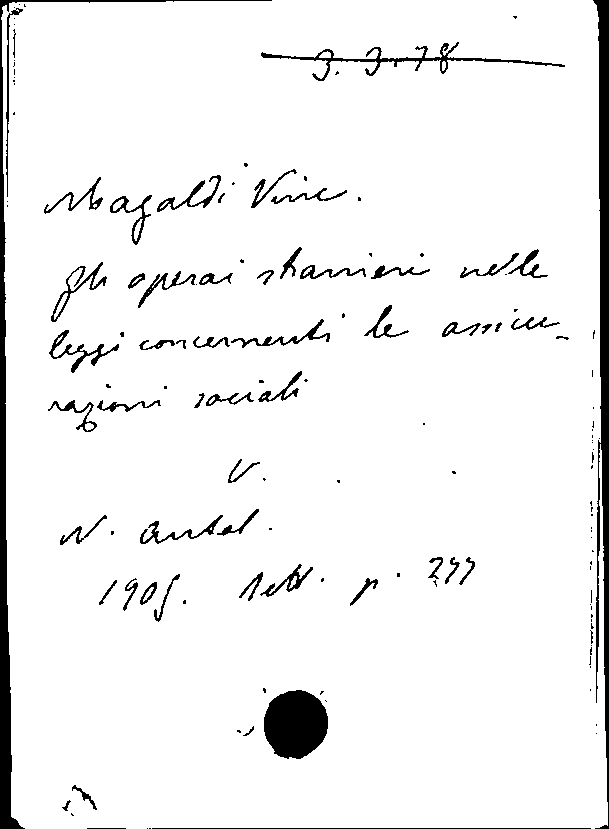 3. 3. 78
Magaldi Vinc.
Gli operai stranieri nelle
leggi concernenti le assicu-
razioni sociali
V.
N. Antol.
1905. Sett. p. 277